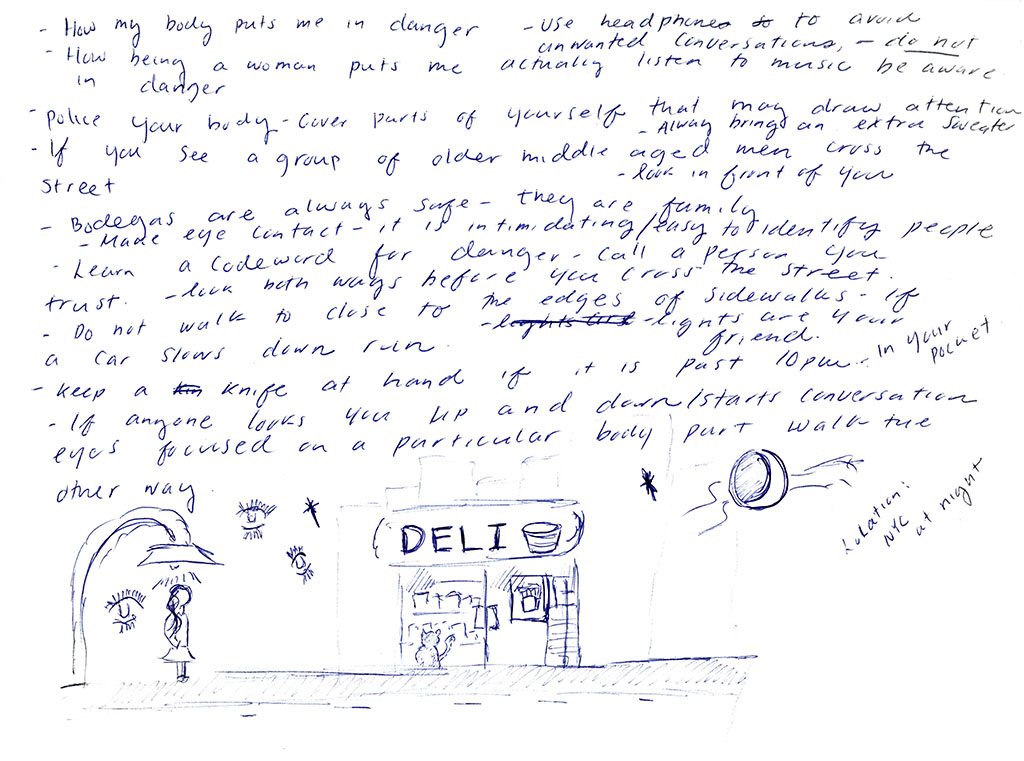 - How my body puts me in danger
- Use headphones to avoid
unwanted conversations, - do not
- How being a woman puts me actually listen to music be aware
in danger
- police your body - cover parts of yourself that may draw attention
- Always bring an extra sweater
- If you see a group of older middle aged men cross the
street
- look in front of you
- Bodegas are always safe - they are family
- Make eye contact - it is intimidating/easy to identify people
- Learn a codeword for danger - call a person you
trust. - look both ways before you cross the street.
- Do not walk to close to the edges of sidewalks - if
- lights are your
friend.
a car slows down run.
- keep a knife at hand if it is past 10pm - in your
pocket
- If anyone looks you up and down/starts conversation
eyes focused on a particular body part walk the
other way.
Location:
NYC
at night
DELI